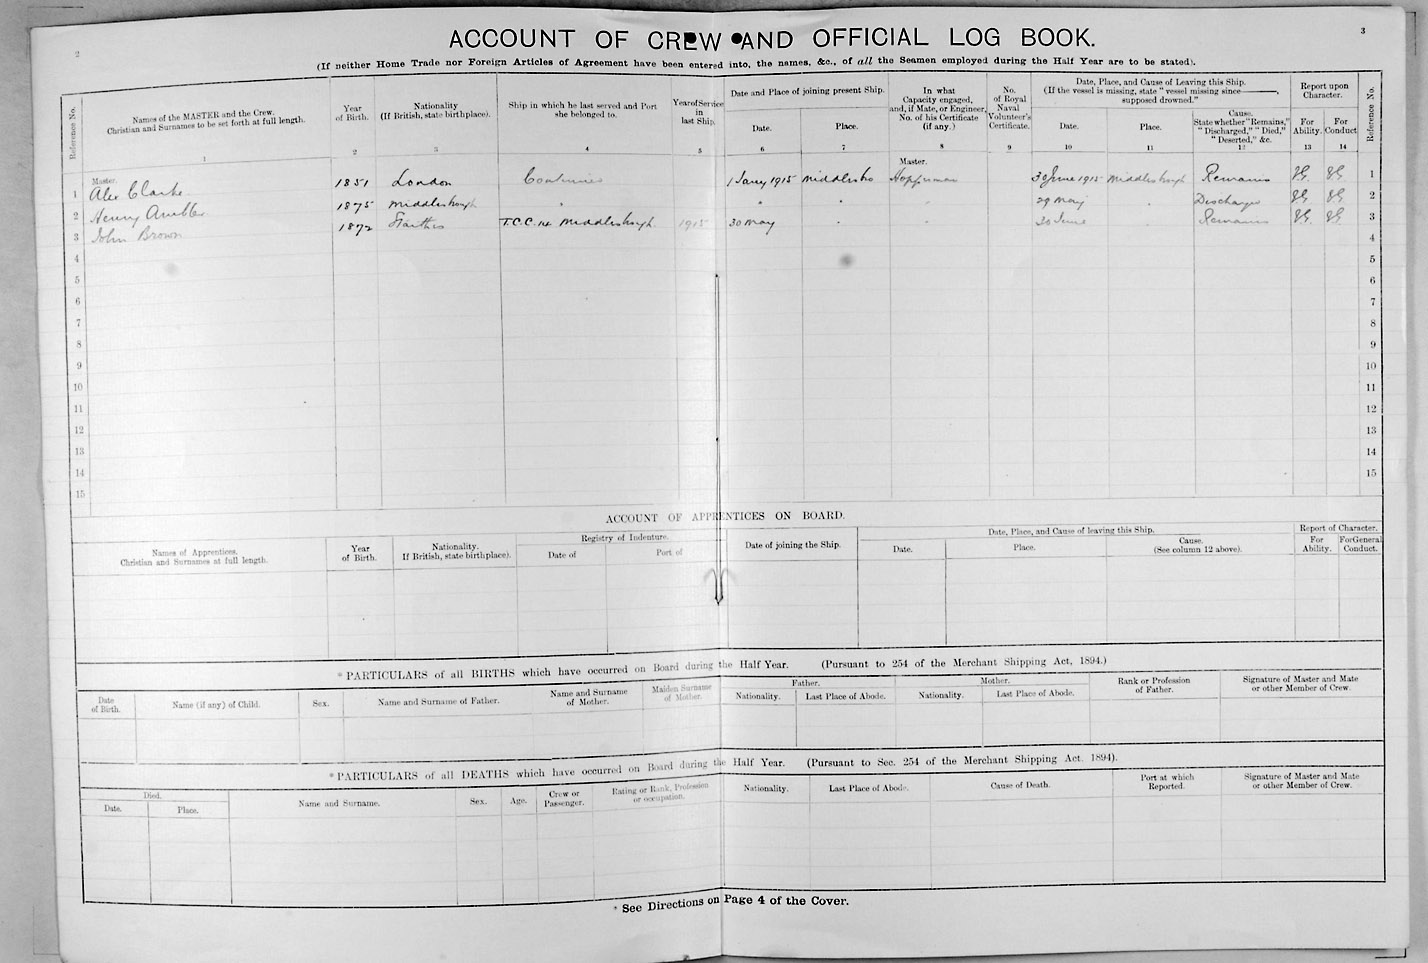 2
3
ACCOUNT OF CREW AND OFFICIAL LOG BOOK.
(If neither Home Trade nor Foreign Articles of Agreement have been entered into, the names, &c., of all the Seamen employed during the Half Year are to be stated).
Reference No.
Names of the MASTER and the Crew.
Christian and Surnames to be set forth at full length.
1
Year
of Birth.
2
Nationality
(If British, state birthplace).
3
Ship in which he last served and Port
she belonged to.
4
Year of Service
in
last Ship.
5
Date and Place of joining present Ship.
Date.
6
Place.
7
In what
Capacity engaged,
and, if Mate, or Engineer,
No. of his Certificate
(if any.)
8
No.
of Royal
Naval
Volunteer's
Certificate.
9
Date, Place, and Cause of Leaving this Ship.
(If the vessel is missing, state "vessel missing since———,
supposed drowned."
Date.
10
Place.
11
Cause.
State whether "Remains,"
"Discharged," "Died,"
"Deserted," &c.
12
Report upon
Character.
For
Ability.
13
For
Conduct
14
Reference No.
Master.
Master.
1 Alex Clarke 1851 London Continues 1 Jany 1915 Middlesbo 30 June 1915 Middlesbrough Remains V.G. V.G. 1
2 Henry 1875 Middlesbrough " " " " 29 May " Discharged V.G. V.G. 2
3 John Brown 1872 Staithes T.C.C. 14 Middlesbrough 1915 30 May " " 30 June " Remains V.G. V.G. 3
4 4
5 5
6 6
7 7
8 8
9 9
10 10
11 11
12 12
13 13
14 14
15 15
ACCOUNT OF APPRENTICES ON BOARD.
Names of Apprentices.
Christian and Surnames at full length.
Year
of Birth.
Nationality.
If British, state birthplace).
Registry of Indenture.
Date of
Port of
Date of joining the Ship.
Date, Place, and Cause of leaving this Ship.
Date.
Place.
Cause.
(See column 12 above).
Report of Character.
For
Ability.
For General
Conduct.
* PARTICULARS of all BIRTHS which have occurred on Board during the Half Year. (Pursuant to 254 of the Merchant Shipping Act, 1894.)
Date
of Birth.
Name (if any) of Child.
Sex.
Name and Surname of Father.
Name and Surname
of Mother.
Maiden Surname
of Mother.
Father.
Nationality.
Last Place of Abode.
Mother.
Nationality.
Last Place of Abode.
Rank or Profession
of Father.
Signature of Master and Mate
or other Member of Crew.
* PARTICULARS of all DEATHS which have occurred on Board during the Half Year. (Pursuant to Sec. 254 of the Merchant Shipping Act. 1894).
Died.
Date.
Place.
Name and Surname.
Sex.
Age.
Crew or
Passenger.
Rating or Rank, Profession
or occupation.
Nationality.
Last Place of Abode.
Cause of Death.
Port at which
Reported.
Signature of Master and Mate
or other Member of Crew.
* See Directions on Page 4 of the Cover.